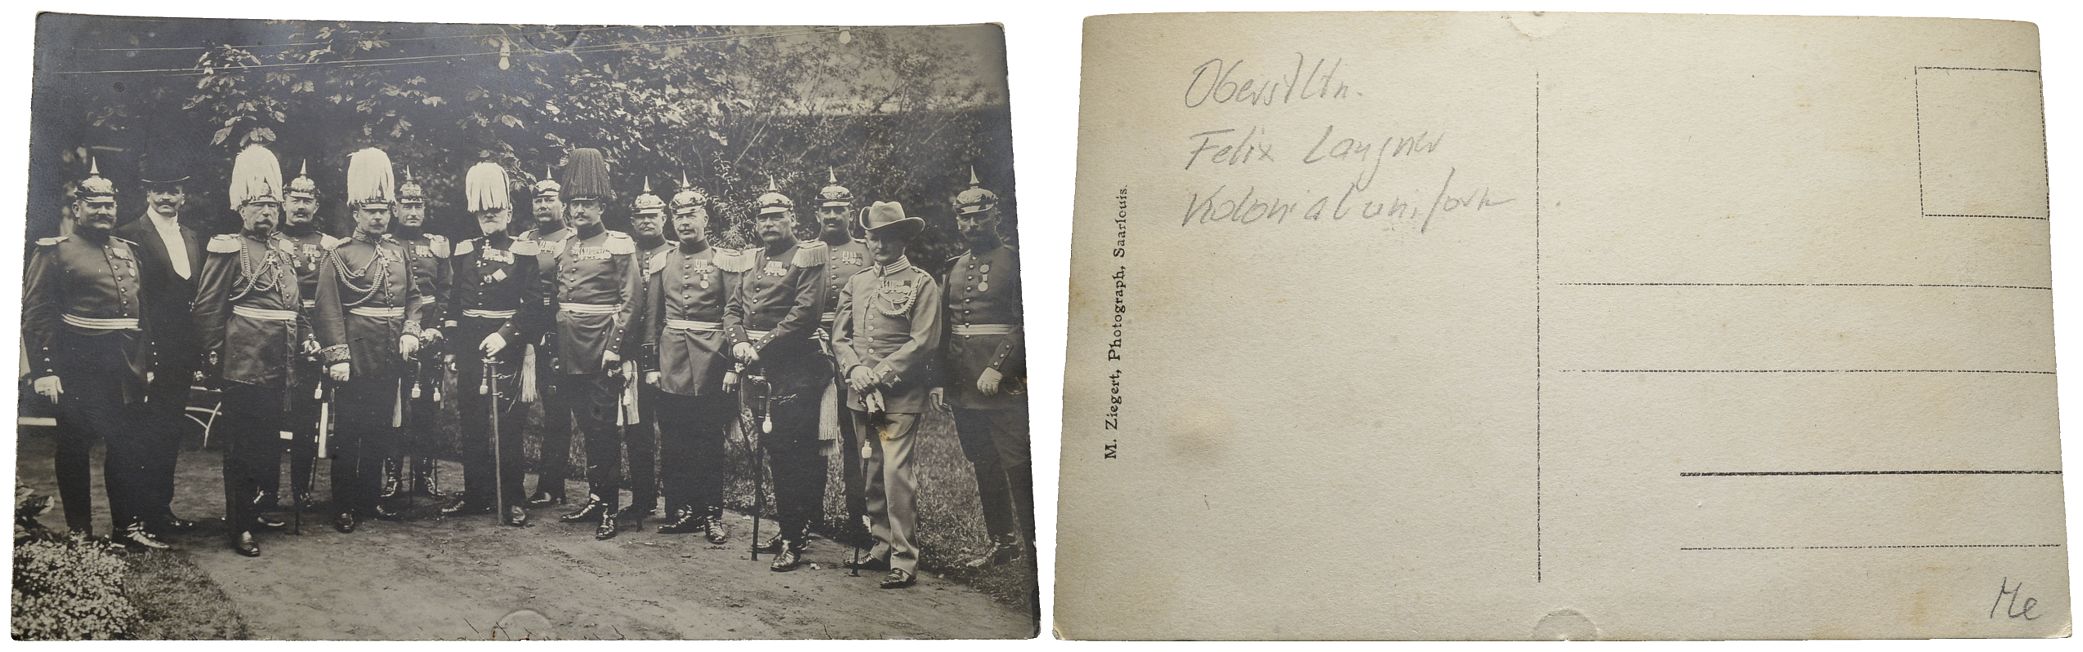 Oberstltn.
Felix Langner
Kolonialuniform
M. Ziegert, Photograph, Saarlouis.
Me